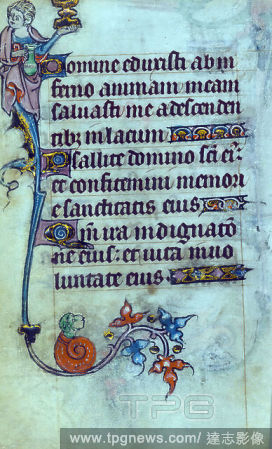 Domine eduxisti ab in
ferno animam meam
saluasti me a descenden
tibꝫ in lacum
Psallite domino sc̄i ei⁹
et confitemini memori
e sanctitatis eius
Qm̄ ira in dignatio
ne eius: et uita in uo
luntate eius
TPG
www.tpgnews.com/達志影像